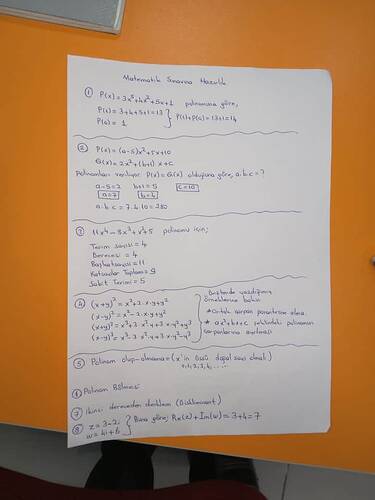 Matematik Sınavına Hazırlık
① P(x) = 3x⁵+4x²+5x+1 polinomuna göre,
P(1) = 3+4+5+1=13
P(0) = 1
P(1)+P(0) = 13+1=14
② P(x) = (a-5)x²+5x+10
Q(x) = 2x²+(b+1)x+c
Polinomları veriliyor. P(x) = Q(x) olduğuna göre, a.b.c = ?
a-5=2 b+1=5 c=10
a=7 b=4
a.b.c = 7.4.10 = 280
③ 11x⁴-8x³+x²+5 polinomu için;
Terim sayısı = 4
Derecesi = 4
Başkatsayısı = 11
Katsayılar Toplamı = 9
Sabit Terimi = 5
④ (x+y)² = x²+2.x.y+y²
(x-y)² = x²-2.x.y+y²
(x+y)³ = x³+3.x².y+3.x.y²+y³
(x-y)³ = x³-3.x².y+3.x.y²-y³
Defterde yazdığımız
örneklerine bakın
* Ortak çarpan parantezine alma
* ax²+bx+c şeklindeki polinomun
çarpanlarına ayrılması
⑤ Polinom olup-olmama = (x'in üssü doğal sayı olmalı)
0, 1, 2, 3, 4, ...
⑥ Polinom Bölmesi
⑦ İkinci dereceden denklem (Diskriminant)
⑧ z = 3-2i
w = 4i+6
Buna göre; Re(z)+Im(w) = 3+4=7